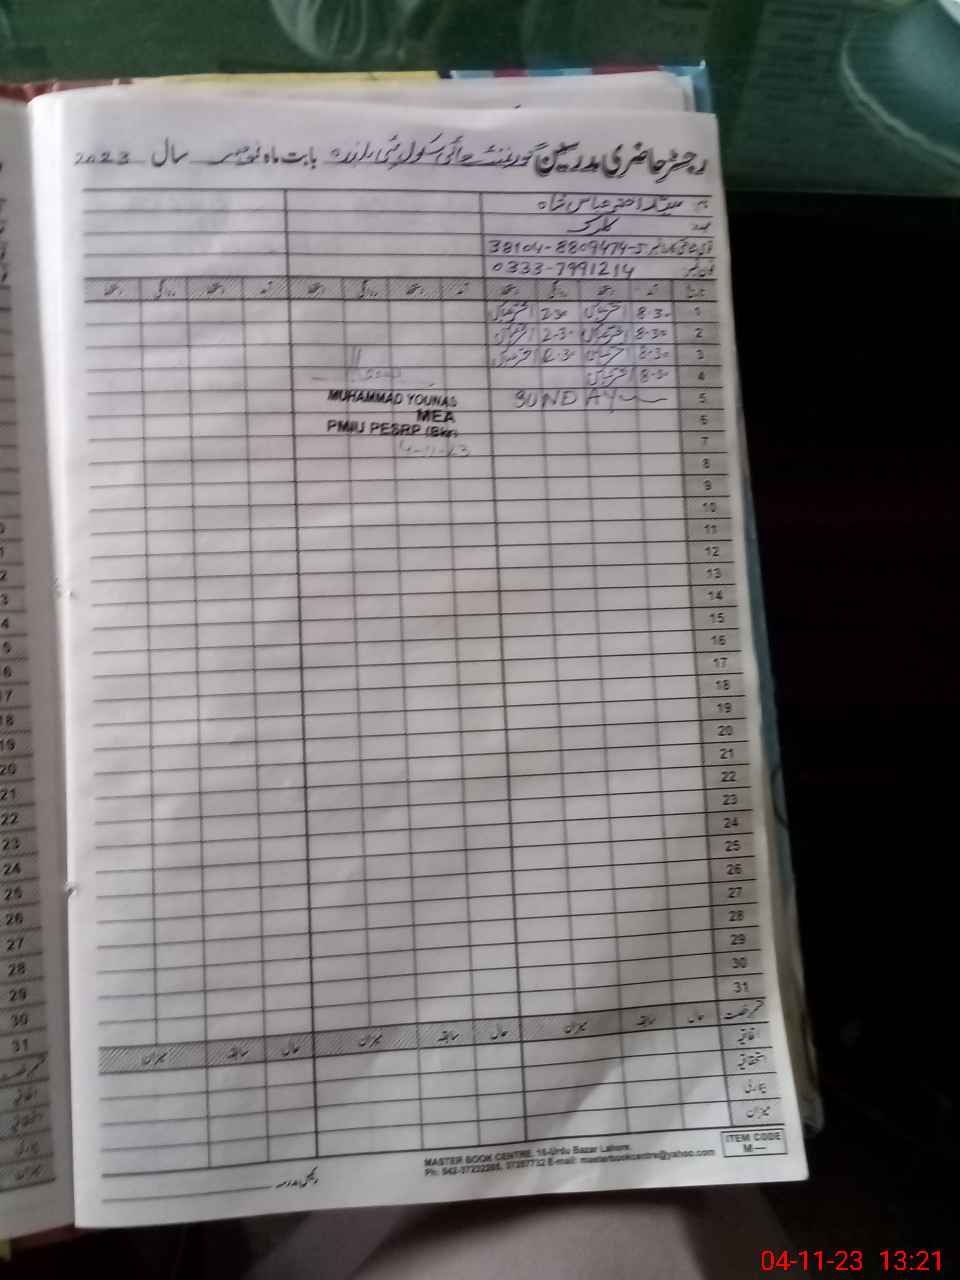 رجسٹر حاضری مدرسین گورنمنٹ ہائی سکول بابت ماہ نومبر سال 2023
نام سید اختر عباس شاہ
عہدہ کلرک
38104-8809474-5
فون نمبر 0333-7991214
تاریخ آمد دستخط روانگی دستخط آمد دستخط روانگی دستخط آمد دستخط روانگی دستخط
1 8-30 اخترعباس 2-30 اخترعباس
2 8-30 اخترعباس 2-30 اخترعباس
3 8-30 اخترعباس 2-30 اخترعباس
4 8-30 اخترعباس
5 SUNDAY
MUHAMMAD YOUNAS
MEA
PMIU PESRP (Bkr)
4-11-23
6
7
8
9
10
11
12
13
14
15
16
17
18
19
20
21
22
23
24
25
26
27
28
29
30
31
قسم رخصت حال سابقہ میزان حال سابقہ میزان حال سابقہ میزان
اتفاقیہ
استحقاقیہ
بیماری
میزان
ITEM CODE
M—
MASTER BOOK CENTRE, 16-Urdu Bazar Lahore.
E-mail: masterbookcentre@yahoo.com
04-11-23 13:21